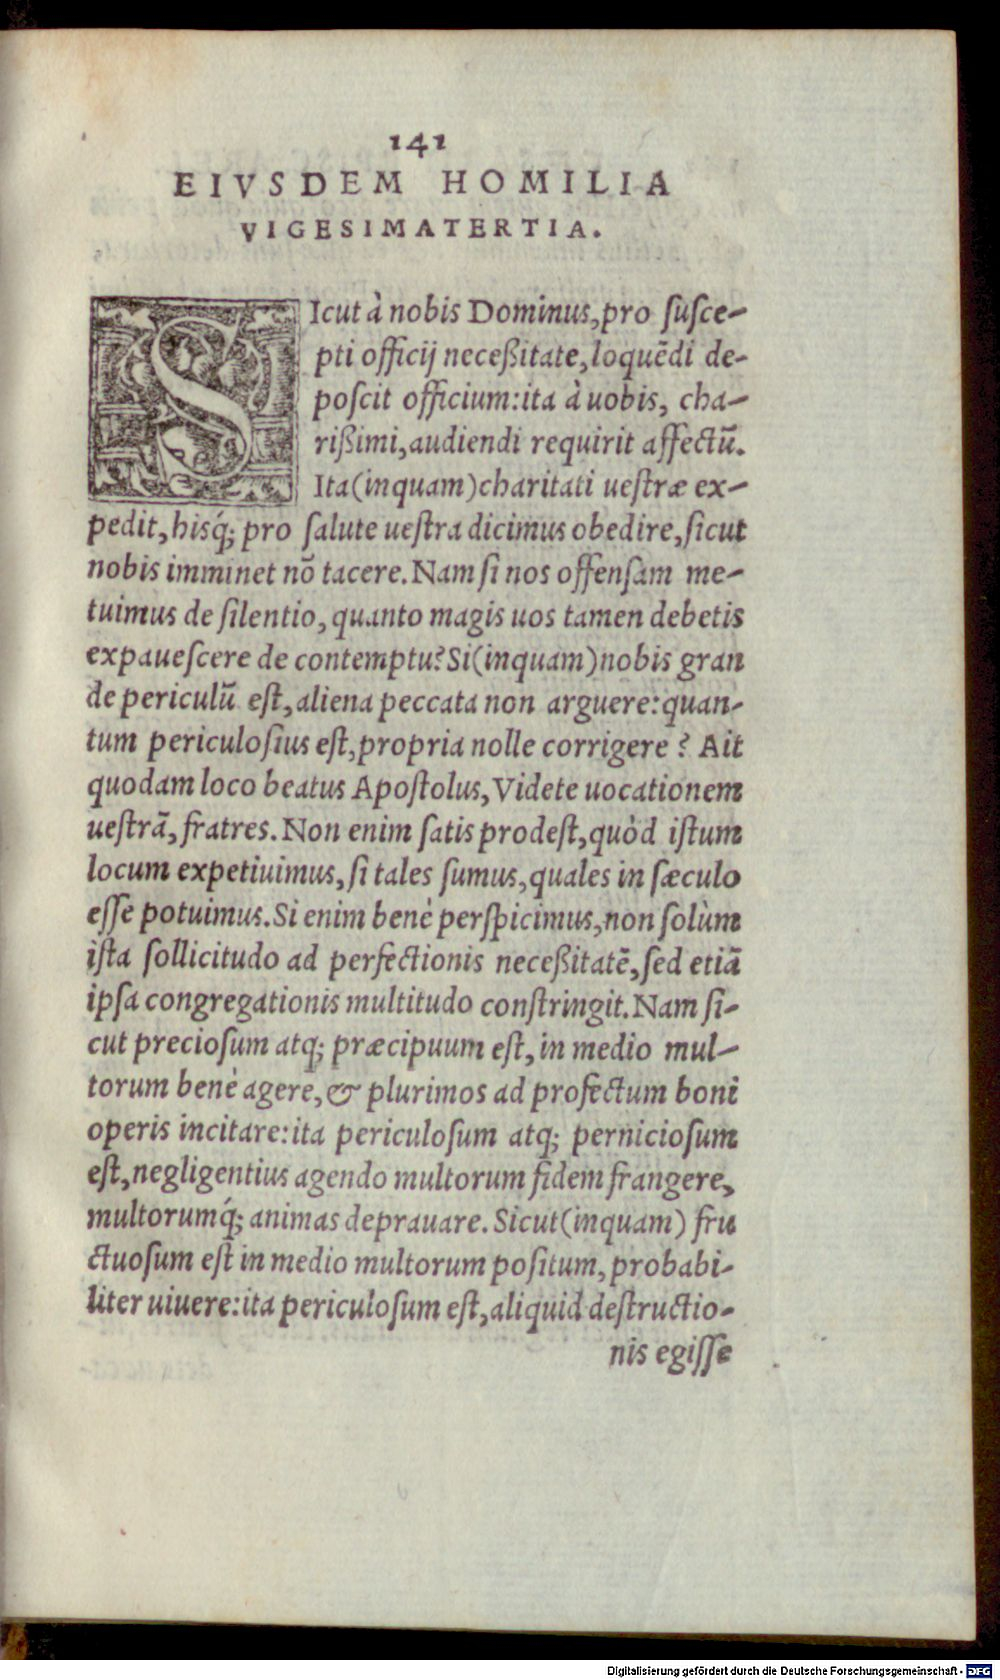 141
EIVSDEM HOMILIA
VIGESIMATERTIA.
SIcut à nobis Dominus, pro ſuſce-
pti officij neceßitate, loquẽdi de-
poſcit officium: ita à uobis, cha-
rißimi, audiendi requirit affectũ.
Ita (inquam) charitati ueſtræ ex-
pedit, hisq́; pro ſalute ueſtra dicimus obedire, ſicut
nobis imminet nõ tacere. Nam ſi nos offenſam me-
tuimus de ſilentio, quanto magis uos tamen debetis
expaueſcere de contemptu? Si (inquam) nobis gran
de periculũ eſt, aliena peccata non arguere: quan-
tum periculoſius eſt, propria nolle corrigere? Ait
quodam loco beatus Apoſtolus, Videte uocationem
ueſtrã, fratres. Non enim ſatis prodeſt, quòd iſtum
locum expetiuimus, ſi tales ſumus, quales in ſæculo
eſſe potuimus. Si enim benè perſpicimus, non ſolùm
iſta ſollicitudo ad perfectionis neceßitatẽ, ſed etiã
ipſa congregationis multitudo conſtringit. Nam ſi-
cut precioſum atq; præcipuum eſt, in medio mul-
torum benè agere, & plurimos ad profectum boni
operis incitare: ita periculoſum atq; pernicioſum
eſt, negligentius agendo multorum fidem frangere,
multorumq́; animas deprauare. Sicut (inquam) fru
ctuoſum eſt in medio multorum poſitum, probabi-
liter uiuere: ita periculoſum eſt, aliquid deſtructio-
nis egiſſe
Digitalisierung gefördert durch die Deutsche Forschungsgemeinschaft - DFG